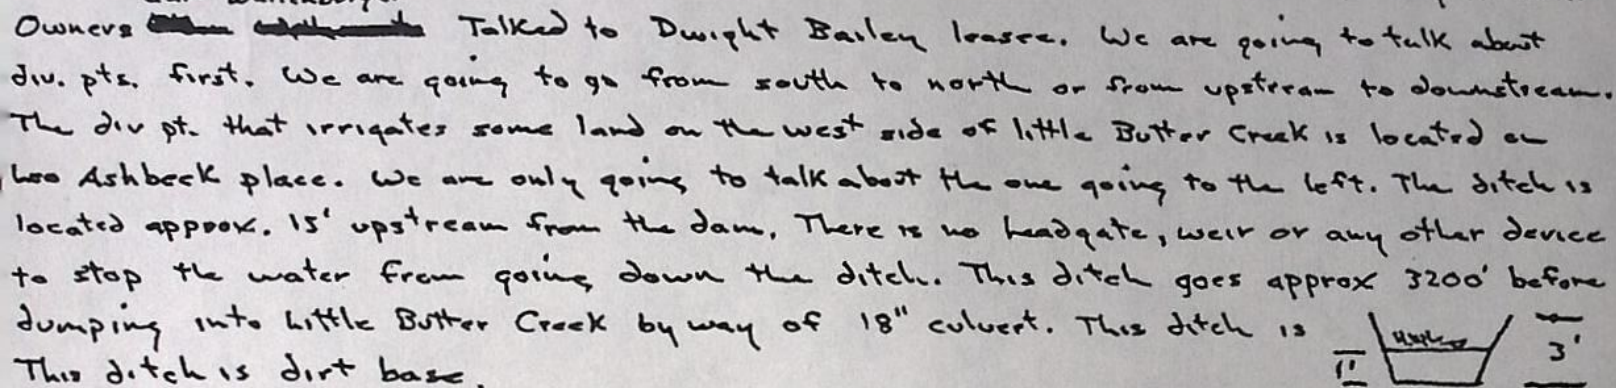 Owners Talked to Dwight Bailey leasee. We are going to talk about
div. pts. first. We are going to go from south to north or from upstream to downstream.
The div pt. that irrigates some land on the west side of little Butter Creek is located on
Ashbeck place. We are only going to talk about the one going to the left. The ditch is
located approx. 15' upstream from the dam. There is no headgate, weir or any other device
to stop the water from going down the ditch. This ditch goes approx 3200' before
dumping into Little Butter Creek by way of 18" culvert. This ditch is
3'
1'
This ditch is dirt base.